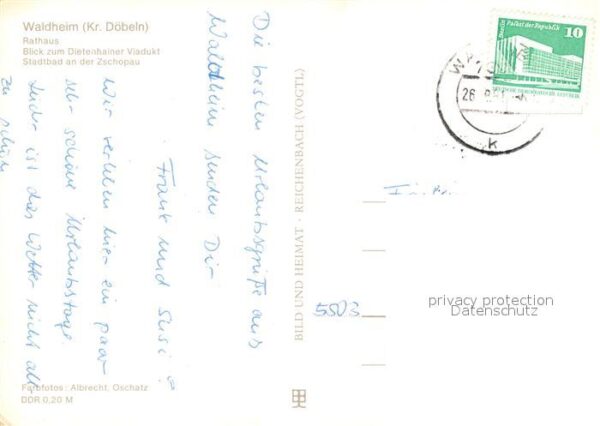 Waldheim (Kr. Döbeln)
Rathaus
Blick zum Dietenhainer Viadukt
Stadtbad an der Zschopau
Die besten Urlaubsgrüße aus
Waldheim senden Dir
Frank und Susi!
Wir verleben hier ein paar
sehr schöne Urlaubstage.
Leider ist das Wetter nicht all-
zu schön
Farbfotos: Albrecht, Oschatz
DDR 0,20 M
BILD UND HEIMAT · REICHENBACH (VOGTL)
Berlin, Palast der Republik
10
DEUTSCHE DEMOKRATISCHE REPUBLIK
26
k
5503
privacy protection
Datenschutz